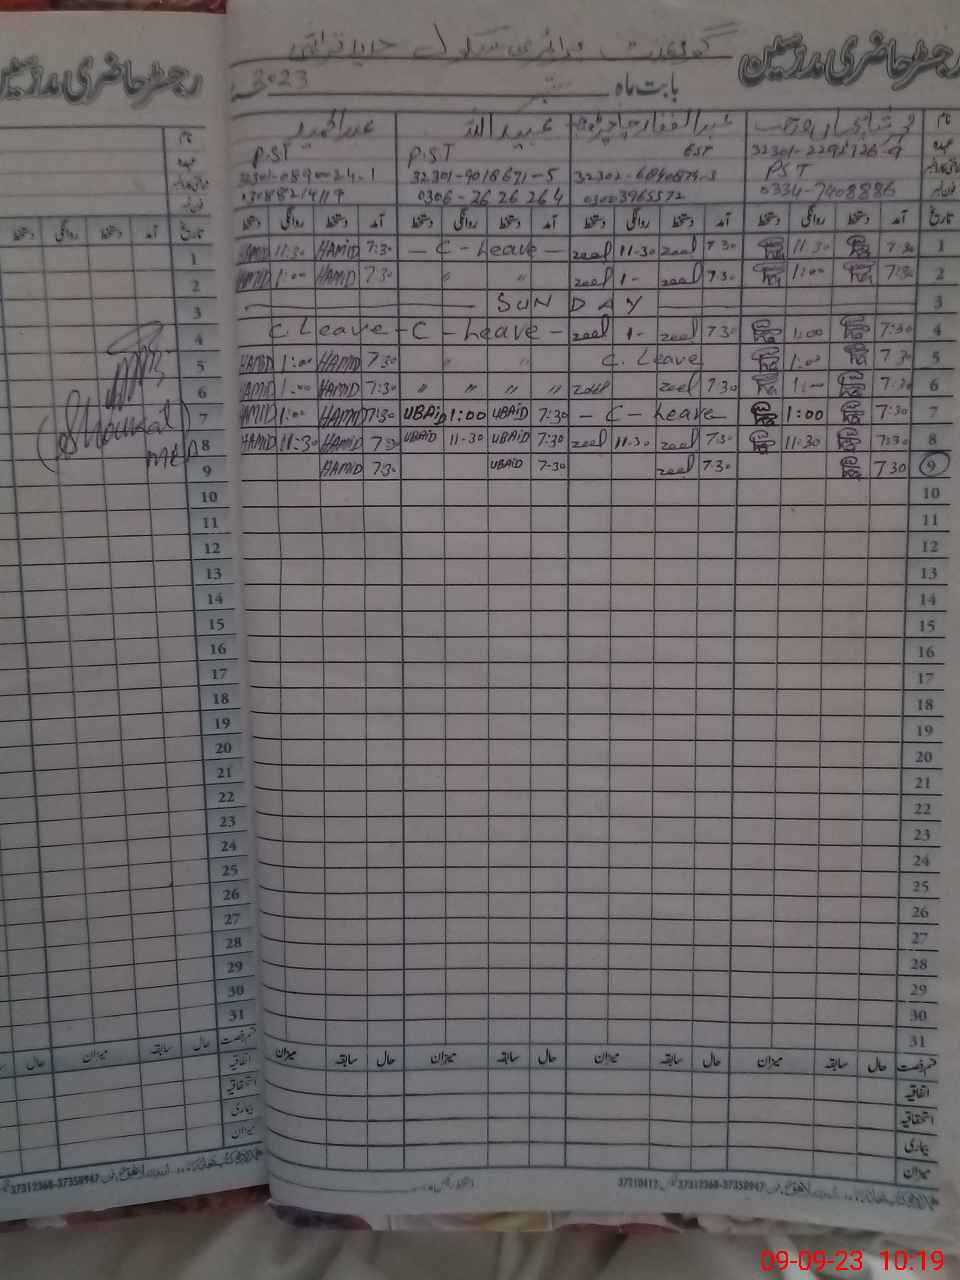 رجسٹر حاضری مدرسین
گورنمنٹ پرائمری سکول جدید
رجسٹر حاضری مدرسین
بابت ماہ ستمبر 2023
نام
عبدالغفار
عبید اللہ
عبدالحمید
عہدہ
32301-2292726-9
EST
P.ST
P.ST
PST
32302-6840879-3
32301-9018671-5
0334-7408886
03003965572
0306-2626264
03088214119
تاریخ آمد دستخط روانگی دستخط آمد دستخط روانگی دستخط آمد دستخط روانگی دستخط آمد دستخط روانگی دستخط
1 7:30 11:30 7:30 zeel 11-30 zeel - C - Leave - 7:30 HAMID 11:30 HAMID
2 7:30 1:00 7:30 zeel 1- zeel " " 7:30 HAMID 1:00 HAMID
3 SUN DAY
4 7:30 1:00 7:30 zeel 1- zeel - C - Leave - C. Leave
5 7:30 1:00 C. Leave " " 7:30 HAMID 1:00 HAMID
6 7:30 1:00 7:30 zeel zeel " " " " 7:30 HAMID 1:00 HAMID
7 7:30 1:00 - C - Leave 7:30 UBAID 1:00 UBAID 7:30 HAMID 1:00 HAMID
8 7:30 11:30 7:30 zeel 11-30 zeel 7:30 UBAID 11-30 UBAID 7:30 HAMID 11:30 HAMID
9 7:30 7:30 zeel 7-30 UBAID 7:30 HAMID
10
11
12
13
14
15
16
17
18
19
20
21
22
23
24
25
26
27
28
29
30
31
قسم رخصت حال سابقہ میزان حال سابقہ میزان حال سابقہ میزان حال سابقہ میزان
اتفاقیہ
استحقاقیہ
بیماری
میزان
37310412 37312368-37358947
نام
عہدہ
تاریخ آمد دستخط روانگی دستخط
1
2
3
4
5
6
7
8
9
10
11
12
13
14
15
16
17
18
19
20
21
22
23
24
25
26
27
28
29
30
31
(Shoukat)
MEA
قسم رخصت حال سابقہ میزان حال سابقہ
اتفاقیہ
استحقاقیہ
بیماری
میزان
37312368-37358947
09-09-23 10:19